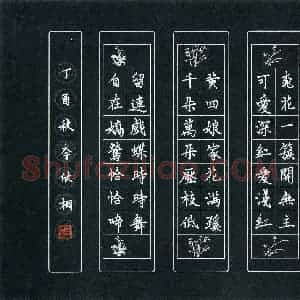 桃花一簇開無主
可愛深紅愛淺紅
黃四娘家花滿蹊
千朵萬朵壓枝低
留連戲蝶時時舞
自在嬌鶯恰恰啼
丁酉秋冬欣桐